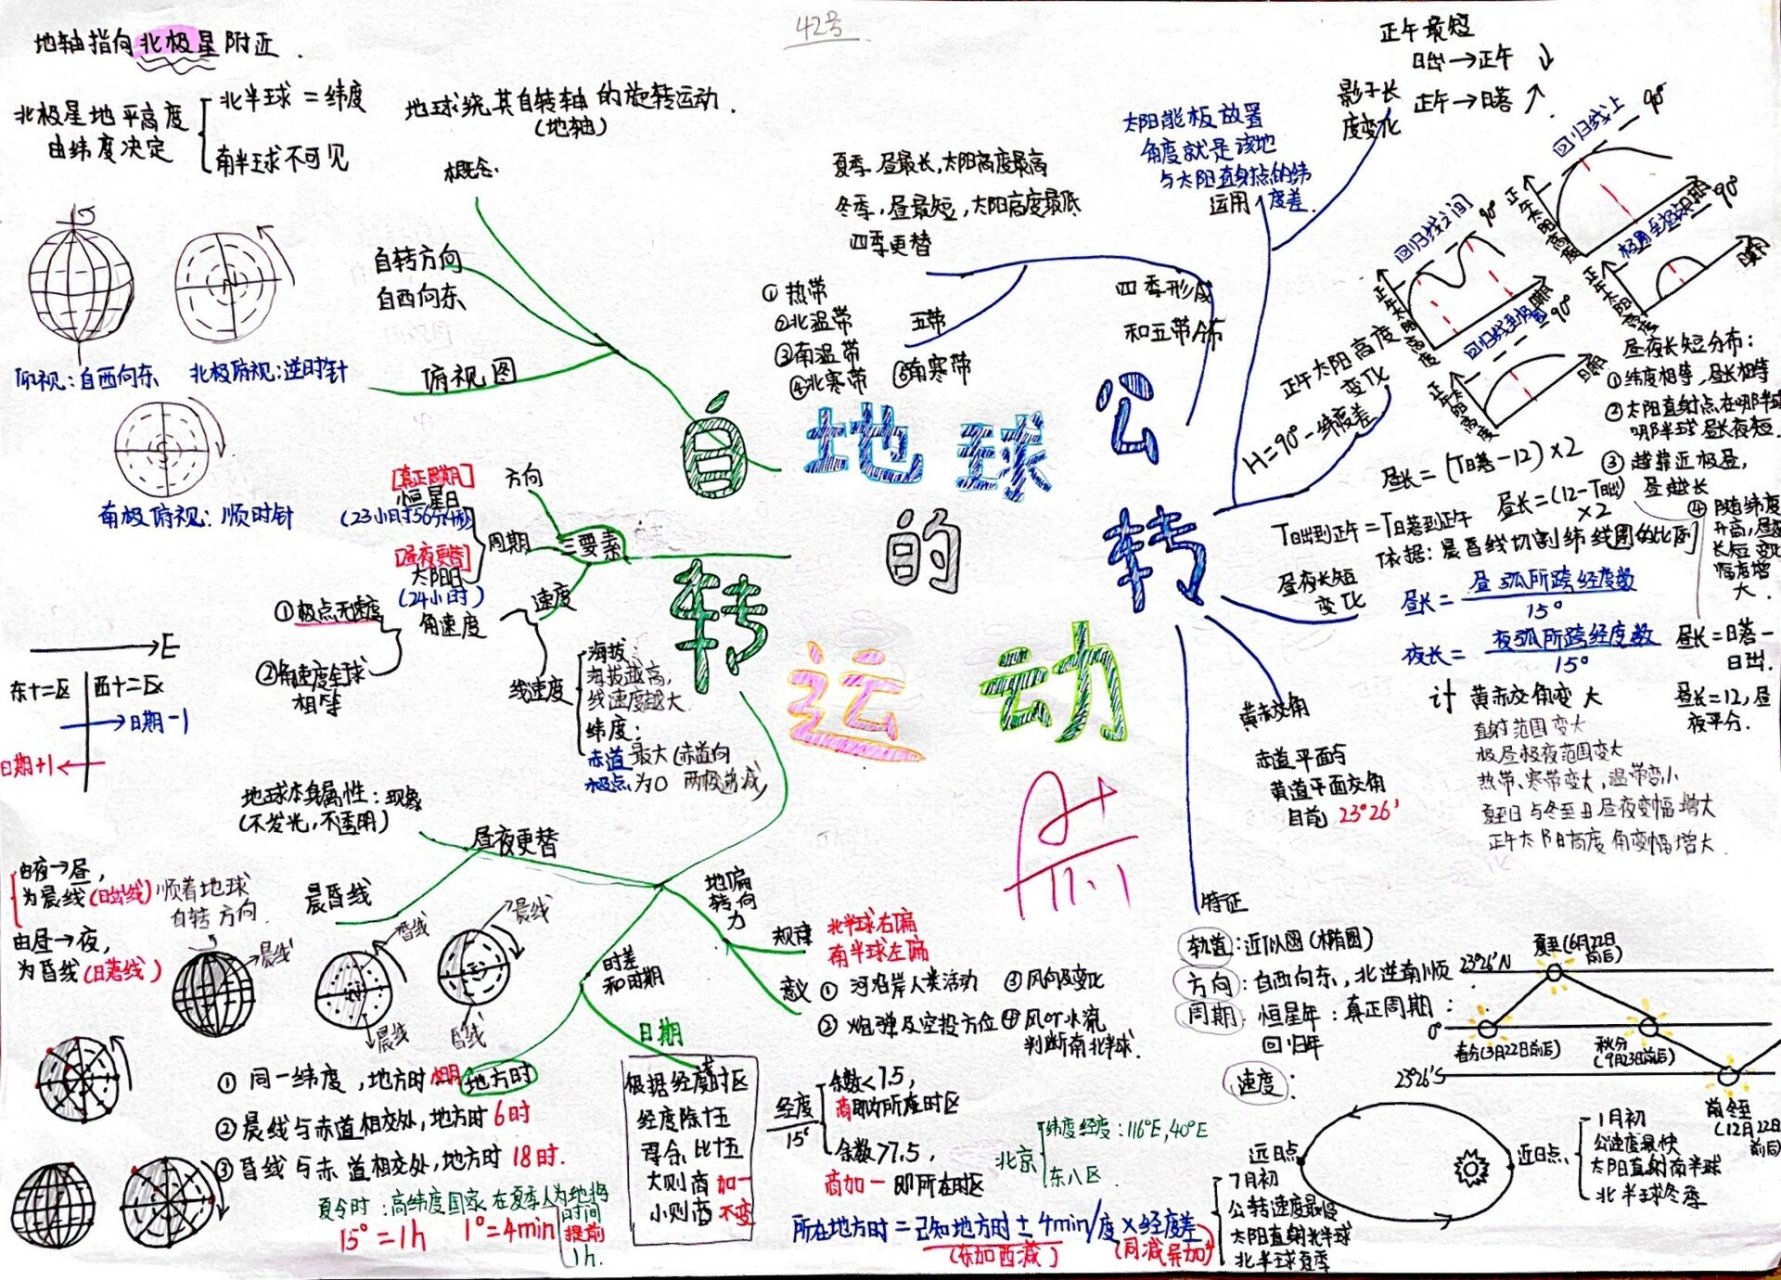 42号
地轴指向北极星附近.
北极星地平高度
由纬度决定
北半球=纬度
南半球不可见
地球绕其自转轴的旋转运动.
(地轴)
概念.
自转方向
自西向东
俯视图
自西向东
北极俯视:逆时针
南极俯视:顺时针
自转
地球
的
运动
公转
三要素
方向
周期
[真正周期]
恒星日
(23小时56分4秒)
[昼夜更替]
太阳日
(24小时)
速度
角速度
①极点无速度
②角速度全球
相等
线速度
海拔:
海拔越高,
线速度越大
纬度:
赤道最大(赤道向
极点为0 两极递减)
E
东十二区
西十二区
→日期-1
日期+1←
地球本身属性:现象
(不发光,不透明)
昼夜更替
晨昏线
由夜→昼,
为晨线(日出线)
由昼→夜,
为昏线(日落线)
顺着地球
自转方向.
晨线
昏线
晨线
晨线
昏线
地转偏向力
规律
北半球右偏
南半球左偏
意义
①河沿岸人类活动
②炮弹及空投方位
③风向及变化
④风or水流
判断南北半球.
时差
和日期
日期
地方时
①同一纬度,地方时相同
②晨线与赤道相交处,地方时6时
③昏线与赤道相交处,地方时18时.
夏令时:高纬度国家在夏季人为地将
时间
提前
1h.
15°=1h
1°=4min
根据经度求时区
经度除十五
得余比七五
大则商加一
小则商不变
经度
15°
余数<7.5,
商即为所在时区
余数>7.5,
商加一即所在时区
北京
纬度经度:116°E,40°E
东八区
所在地方时=已知地方时±4min/度×经度差
(东加西减)
(同减异加)
夏季,昼最长,太阳高度最高
冬季,昼最短,太阳高度最低
四季更替
四季形成
和五带分布
五带
①热带
②北温带
③南温带
④北寒带
⑤南寒带
太阳能板放置
角度就是该地
与太阳直射点的纬
度差.
运用
影子长
度变化
正午最短
日出→正午↓
正午→日落↑
正午太阳高度
变化
H=90°-纬度差
回归线之间
90°
正午太阳高度
日期
回归线上
90°
正午太阳高度
日期
回归线至极圈
90°
正午太阳高度
日期
极圈至极点
90°
正午太阳高度
日期
昼夜长短分布:
①纬度相等,昼长相等
②太阳直射点在哪半球
哪半球昼长夜短.
③越靠近极昼,
昼越长
④随纬度
升高,昼夜
长短变化
幅度增
大.
昼长=(T日落-12)×2
昼长=(12-T日出)
×2
T日出到正午=T日落到正午
依据:晨昏线切割纬线圈的比例
昼夜长短
变化
昼长=昼弧所跨经度数
15°
夜长=夜弧所跨经度数
15°
昼长=日落-
日出.
昼长=12,昼
夜平分.
黄赤交角
赤道平面与
黄道平面交角
目前23°26′
黄赤交角变大
直射范围变大
极昼极夜范围变大
热带、寒带变大,温带变小
夏至日与冬至日昼夜变幅增大
正午太阳高度角变幅增大.
A+
11.1
特征
轨道:近似圆(椭圆)
方向:自西向东,北逆南顺
周期:恒星年:真正周期:
回归年
速度:
23°26′N
0°
23°26′S
夏至(6月22日
前后)
春分(3月22日前后)
秋分
(9月23日前后)
冬至
(12月22日
前后)
远日点
7月初
公转速度最慢
太阳直射北半球
北半球夏季
近日点.
1月初
公速度最快
太阳直射南半球
北半球冬季